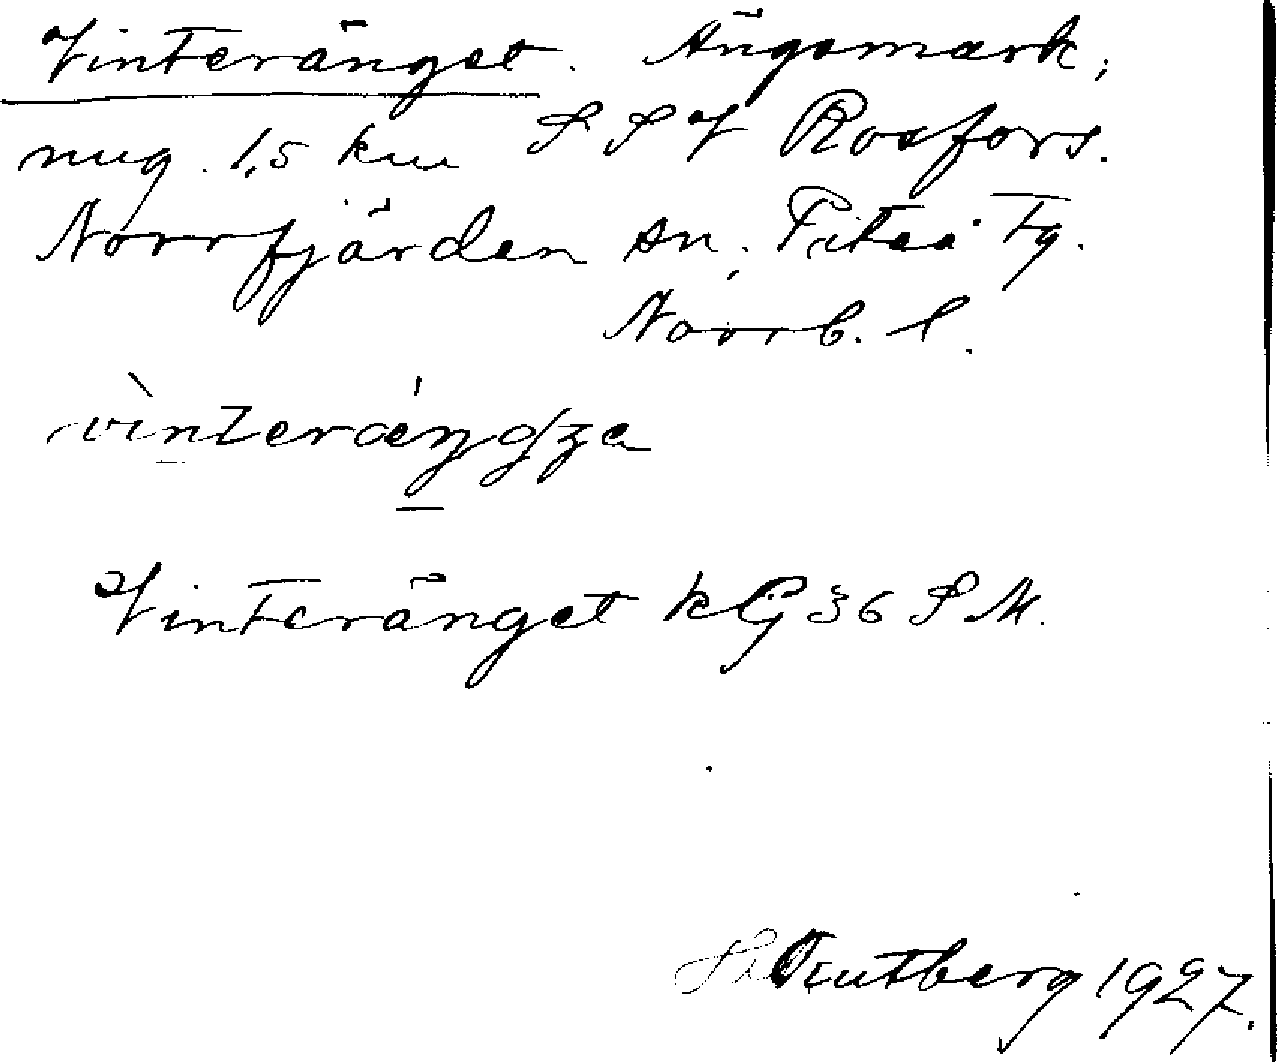 Vinteränget. Ängsmark,
nug. 1,5 km SSV Rosfors.
Norrfjärden sn, Piteå Tg.
Norrb. l.
vìnteræ´ŋgʒa
Vinteränget kG 36 S M.
Stentberg 1927.